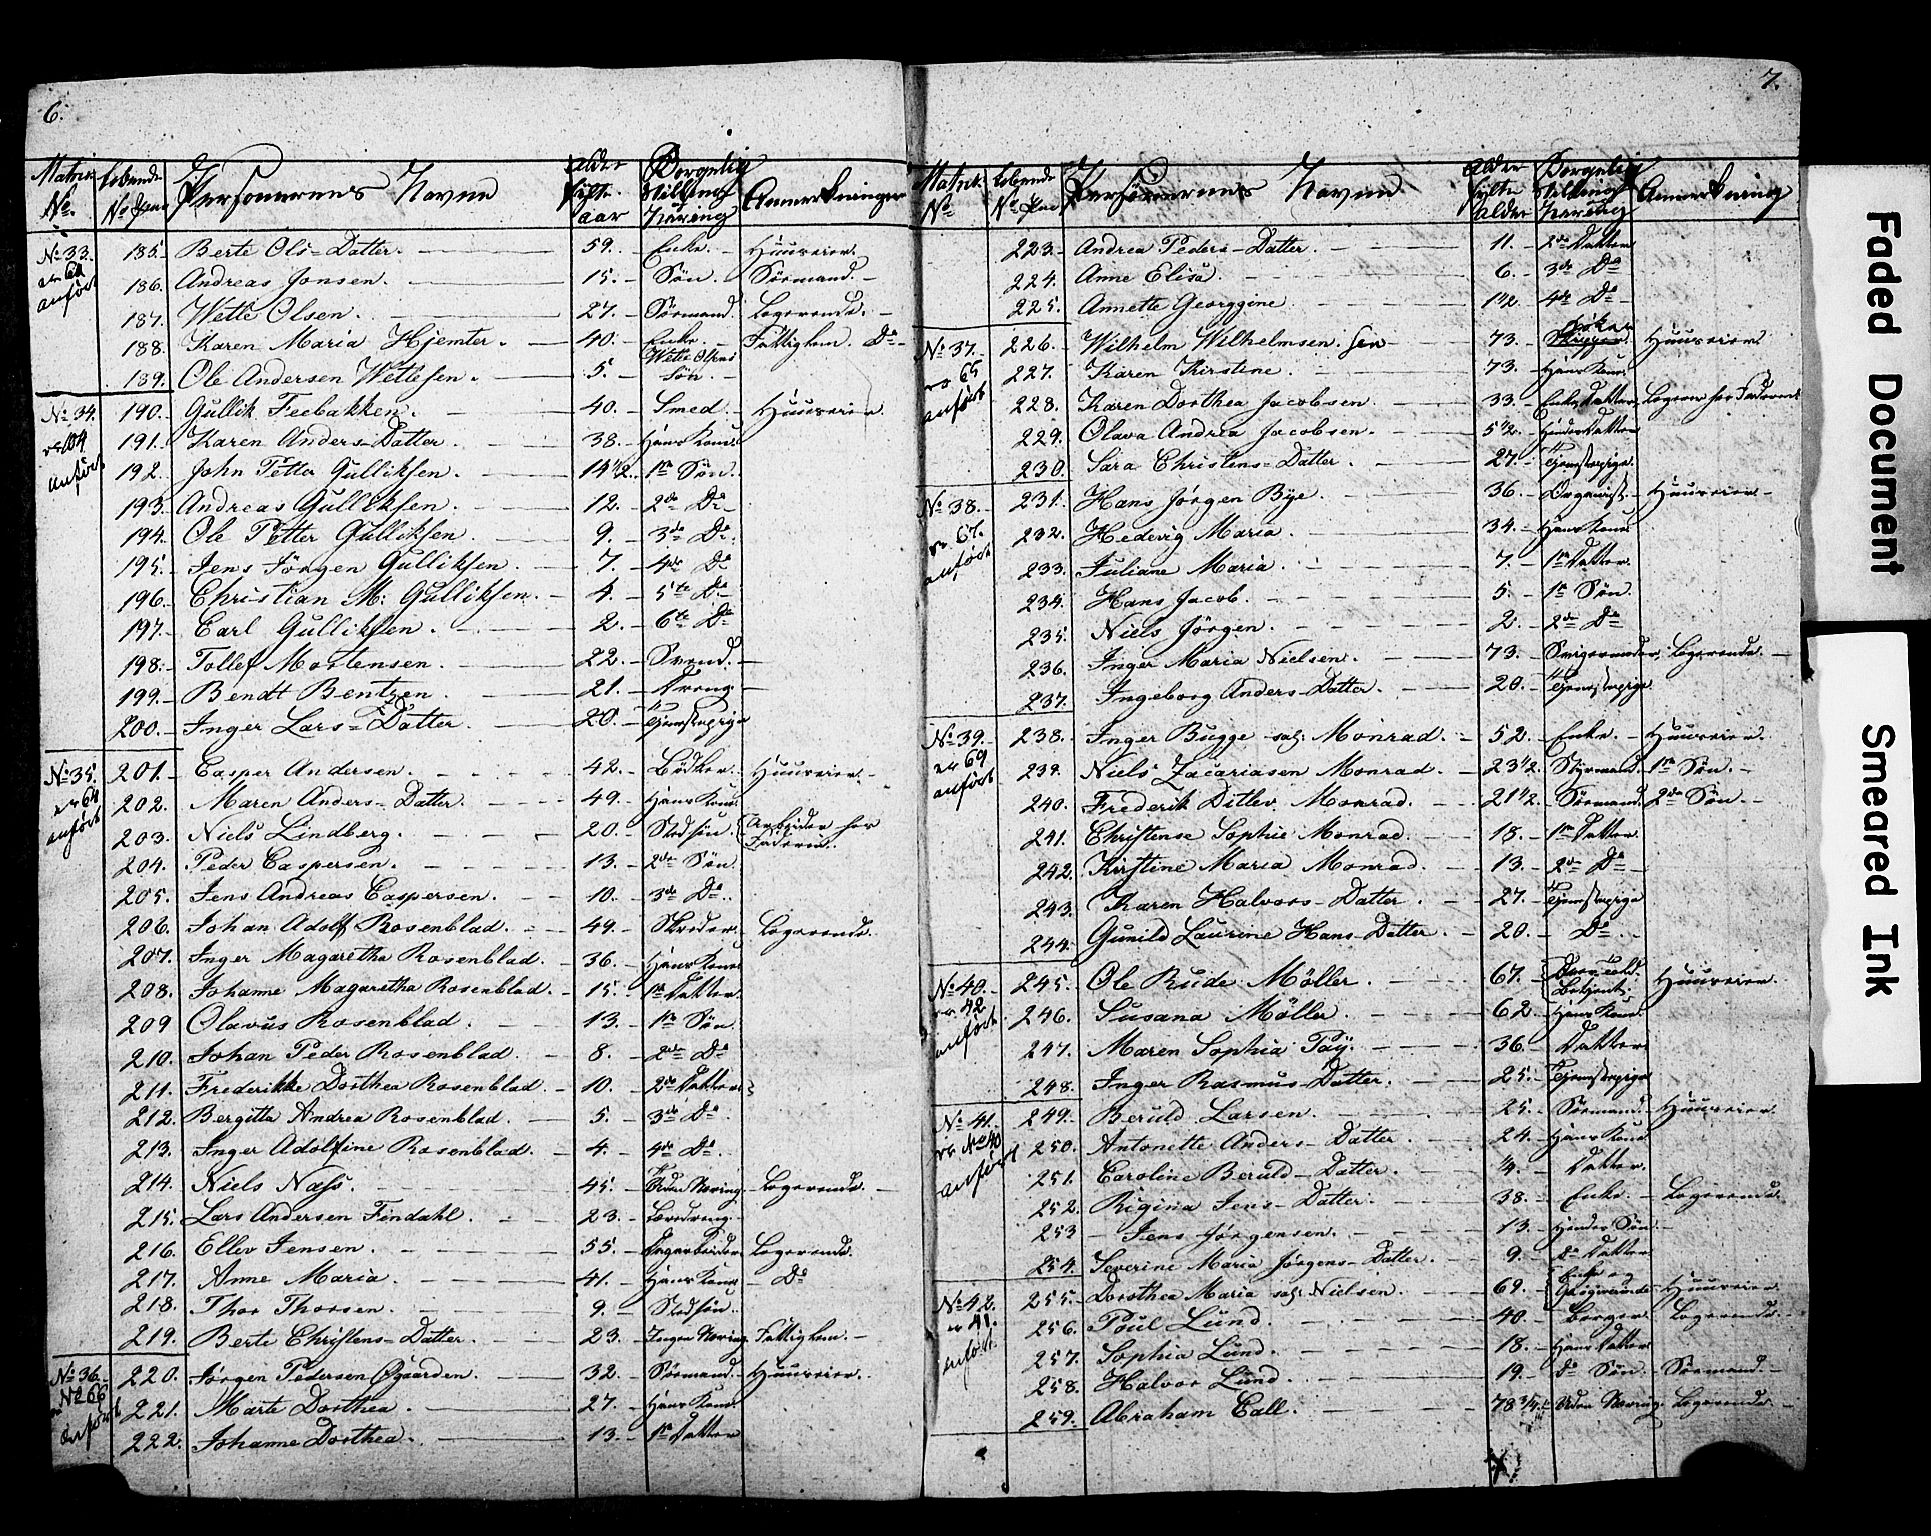 6.
Matric No. Løbende No. Personernes Navne Alder fylte aar Borgelig Stilling Næring Anmerkninger
No 33. 185. Berte Ols-Datter. 59. Enke. Huuseier.
er 62 anført 186. Andreas Jonsen. 15. Søn. Sørmand.
187. Wette Olsen. 27. Sørmand. Logerende.
188. Karen Maria Hjemter. 40. Enke. Fattiglem. Do
189. Ole Andersen Wettesen. 5. Wette Olsens Søn.
No 34. 190. Gullik Feebakken. 40. Smed. Huuseier.
anført 191. Karen Anders-Datter. 38. Hans Kone.
192. John Petter Gulliksen. 14 1/2. 1te Søn.
193. Andreas Gulliksen. 12. 2de Do
194. Ole Petter Gulliksen. 9. 3de Do
195. Jens Jörgen Gulliksen. 7. 4de Do
196. Christian M: Gulliksen. 4. 5te Do
197. Carl Gulliksen. 2. 6te Do
198. Tollef Mortensen. 22. Svend.
199. Bendt Bentzen. 21. Dreng.
200. Inger Lars-Datter. 20. Tjenstepige
No 35. 201. Casper Andersen. 42. Bödker. Huuseier.
er 64 anført 202. Maren Anders-Datter. 49. Hans Kone.
203. Niels Lindberg. 20. Stedsøn. Arbeider hos Faderen.
204. Peder Caspersen. 13. 2de Søn.
205. Jens Andreas Caspersen. 10. 3de Do
206. Johan Adolf Rosenblad. 49. Skreder. Logerende.
207. Inger Magaretha Rosenblad. 36. Hans Kone
208. Johanne Magaretha Rosenblad. 15. 1te Datter.
209 Olavus Rosenblad. 13. 1te Søn.
210. Johan Peder Rosenblad. 8. 2de Do
211. Frederikke Dorthea Rosenblad. 10. 2de Datter
212. Bergitta Andrea Rosenblad. 5. 3de Do
213. Inger Adolfine Rosenblad. 4. 4de Do
214. Niels Nass. 45. Uden Næring. Logerende.
215. Lars Andersen Findahl. 23. Læredreng.
216. Ellev Jensen. 55. Logerende.
217. Anne Maria. 41. Hans Kone Do
218. Thor Thorsen. 9. Stedsøn.
219. Berte Christens-Datter. 23. Ingen Næring. Fattiglem.
No 36. 220. Jørgen Pedersen Øgaarden. 32. Sørmand. Huuseier.
No 66 anført 221. Marte Dorthea. 27. Hans Kone.
222. Johanne Dorthea. 13. 1te Datter
7.
Matric No Løbende No Personernes Navne Alder fylte alder Borgelig Stilling Næring Anmerkning
223. Andrea Peders-Datter. 11. 2de Datter
224. Anne Elisa. 6. 3de Do
225. Annette Georggine. 1 1/2. 4de Do
No 37. 226. Wilhelm Wilhelmsen. Sen 73. Skipper Huuseier.
er 65 anført 227. Karen Kirstine. 73. Hans Kone.
228. Karen Dorthea Jacobsen. 33. Enke, Datter, Logerer hos Faderen
229. Olava Andrea Jacobsen. 5 1/2. Hendes Datter
230. Sara Christens-Datter. 27. Tjenstepige.
No 38. 231. Hans Jörgen Bye. 36. Organist. Huuseier.
er 67. anført 232. Hedevig Maria. 34. Hans Kone.
233. Juliane Maria. 7. 1te Datter.
234. Hans Jacob. 5. 1te Søn.
235. Niels Jörgen. 2. 2de Do
236. Inger Maria Nielsen. 73. Svigermoder. Logerende.
237. Ingeborg Anders-Datter. 20. Tjenstepige
No 39. 238. Inger Bugge sal: Monrad. 52. Enke. Huuseier.
er 69 anført 239. Niels Zacariasen Monrad. 23 1/2. Styrmand. 1te Søn.
240. Frederik Ditlev Monrad. 21 1/2. Sørmand. 2de Søn.
241. Christense Sophie Monrad. 18. 1te Datter.
242. Kirstine Maria Monrad. 13. 2de Do
243. Karen Halvors-Datter. 27. Tjenstepige
244. Gunild Laurine Hans-Datter. 20. Do
No 40. 245. Ole Rude Möller. 67. Huuseier.
er 42 anført 246. Susana Möller. 62. Hans Kone.
247. Maren Sophia Pay. 36. Datter
248. Inger Rasmus-Datter. 25. Tjenstepige
No 41. 249. Beruld Larsen. 25. Sørmand. Huuseier.
er No 40 anført 250. Antonette Anders-Datter. 24. Hans Kone
251. Caroline Beruld-Datter. 1/4. Datter.
252. Rigina Jens-Datter. 38. Enke. Logerende
253 Jens Jørgensen. 13. Hendes Søn.
254. Severine Maria Jørgens-Datter. 9. Do Datter
No 42. 255. Dorothea Maria sal: Nielsen. 69. Enke og Huuseier.
er 41. anført. 256. Poul Lund. 40. Borger. Logerende.
257. Sophia Lund. 18. Hans Datter
258. Halvor Lund. 19. Do Søn. Sørmand.
259. Abraham Call. 78 3/4. Uden Næring. Logerende
Faded Document
Smeared Ink